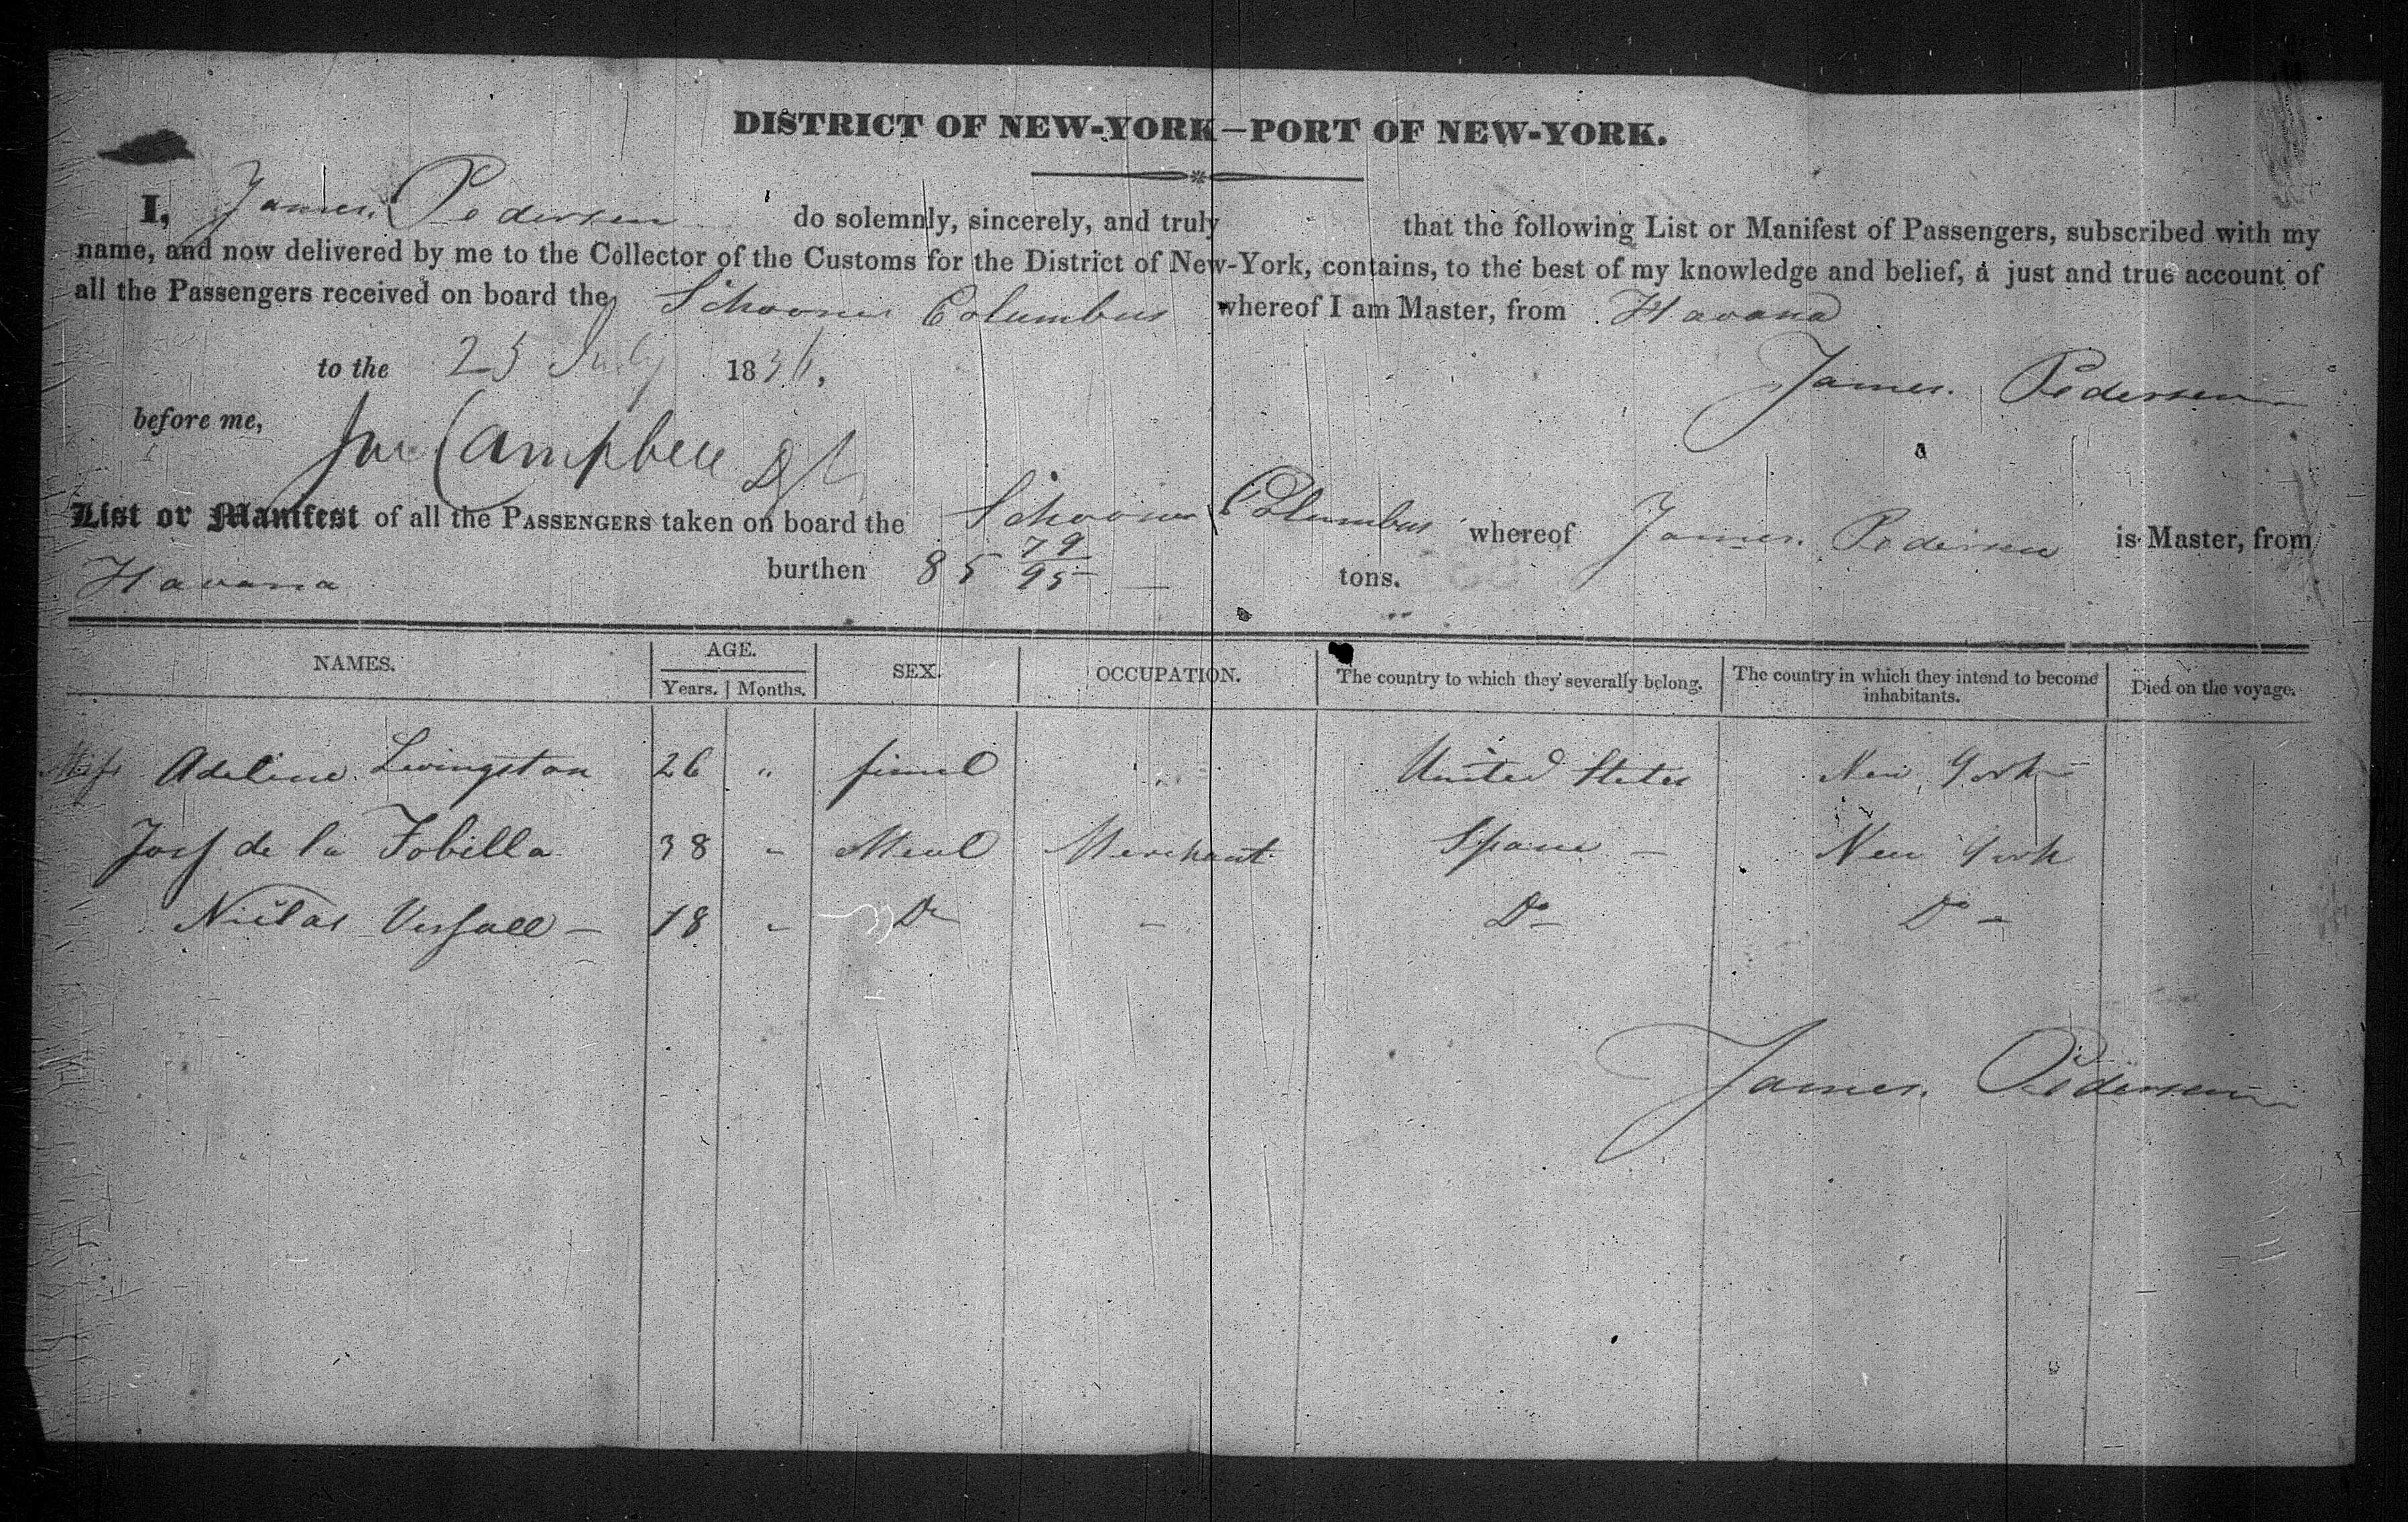 DISTRICT OF NEW-YORK—PORT OF NEW-YORK.
I, James Pedersen do solemnly, sincerely, and truly that the following List or Manifest of Passengers, subscribed with my
name, and now delivered by me to the Collector of the Customs for the District of New-York, contains, to the best of my knowledge and belief, a just and true account of
all the Passengers received on board the Schooner Columbus whereof I am Master, from Havana
to the 25 July 1836.
James Pedersen
before me, Campbell
List or Manifest of all the PASSENGERS taken on board the Schooner Columbus whereof James Pedersen is Master, from
Havana burthen 85 79/95 tons.
NAMES. AGE. SEX. OCCUPATION. The country to which they severally belong. The country in which they intend to become inhabitants. Died on the voyage.
Years. Months.
Adeline Livingston 26 " femel United States New York
de la Fobilla 38 - Meal Merchant Spane - New York
18 - Do - Do Do -
James Pedersen